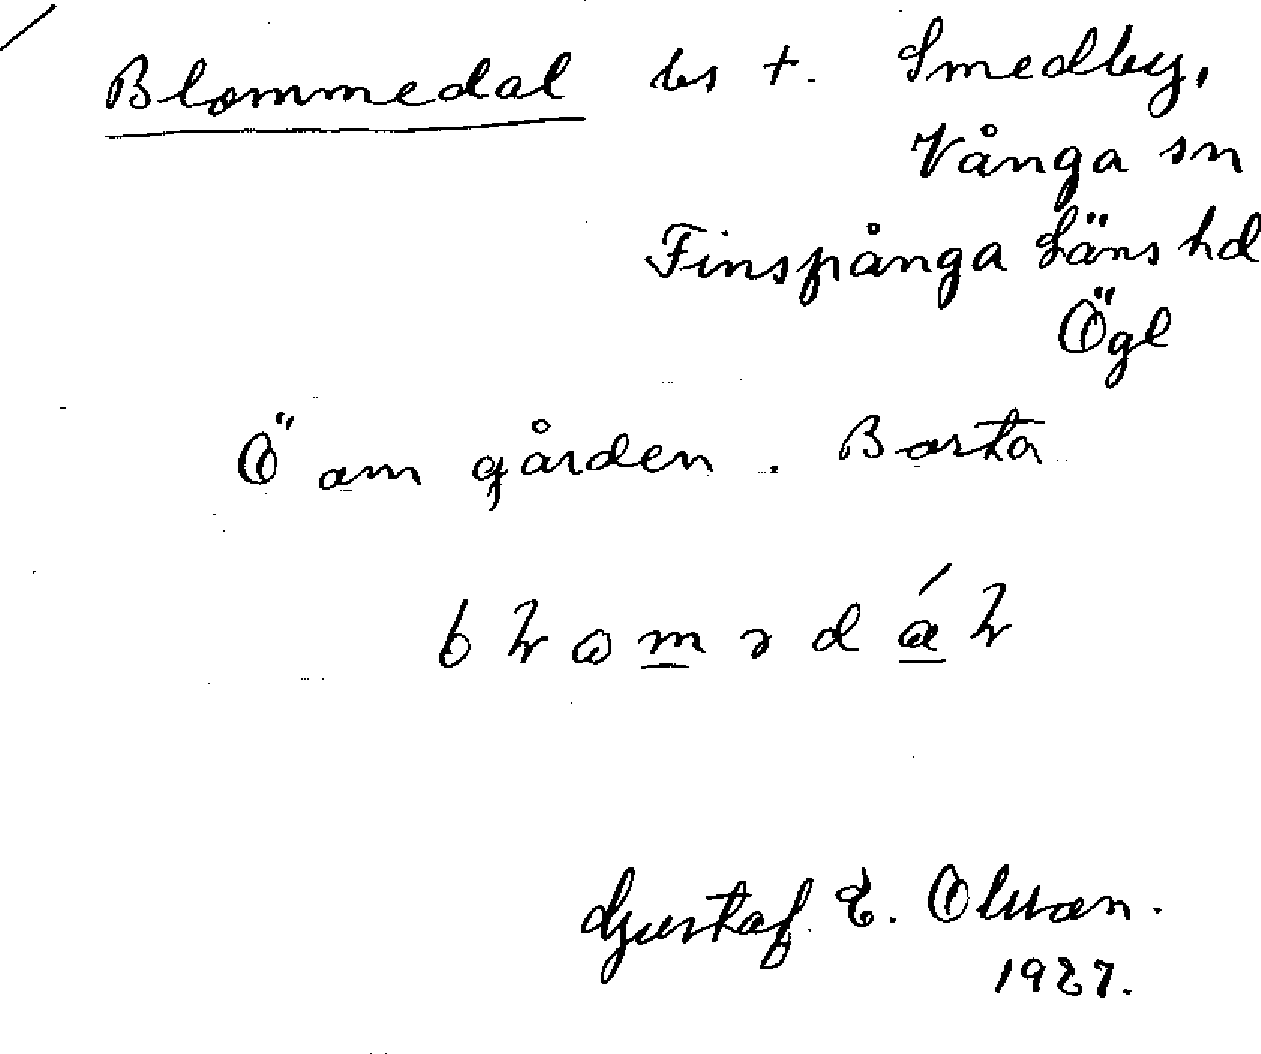 Blommedal bs t. Smedby,
Vånga sn
Finspånga läns hd
Ögl
Ö om gården. Borta
Gustaf E. Olsson.
1927.